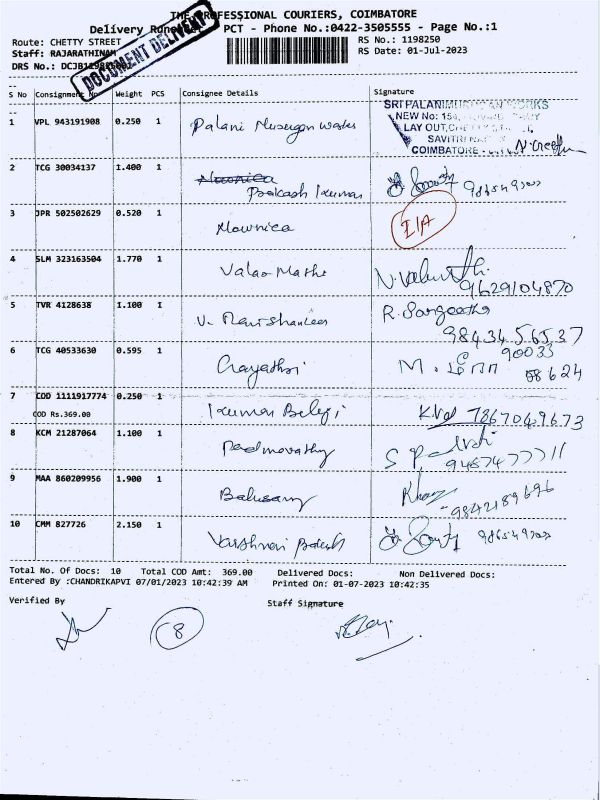 THE PROFESSIONAL COURIERS, COIMBATORE
Delivery PCT - Phone No.:0422-3505555 - Page No.:1
DOCUMENT DELIVERY
Route: CHETTY STREET
RS No.: 1198250
Staff: RAJARATHINAM
RS Date: 01-Jul-2023
DRS No.:
S No Consignment No Weight PCS Consignee Details Signature
1 VPL 943191908 0.250 1 Palani Murugan
SRI PALANIMURUGAN WORKS
NEW No: 154,
LAY OUT,
SAVITRI
COIMBATORE -
2 TCG 30034137 1.400 1 Mownica
Prakash Kumar
3 JPR 502502629 0.520 1 Mownica I/A
4 SLM 323163504 1.770 1 Valar Mathi
9629104870
5 TVR 4128638 1.100 1 V. Ravishankar R. Sangeetha
9843456537
6 TCG 40533630 0.595 1 Gayathri M.
90033
88624
7 COD 1111917774 0.250 1 Kumar Belgi 7867049673
COD Rs.369.00
8 KCM 21287064 1.100 1 Padmavathy
9 MAA 860209956 1.900 1 Balusamy
9842189696
10 CMM 827726 2.150 1 Varshnavi Prakash
Total No. Of Docs: 10 Total COD Amt: 369.00 Delivered Docs: Non Delivered Docs:
Entered By :CHANDRIKAPVI 07/01/2023 10:42:39 AM Printed On: 01-07-2023 10:42:35
Verified By Staff Signature
8